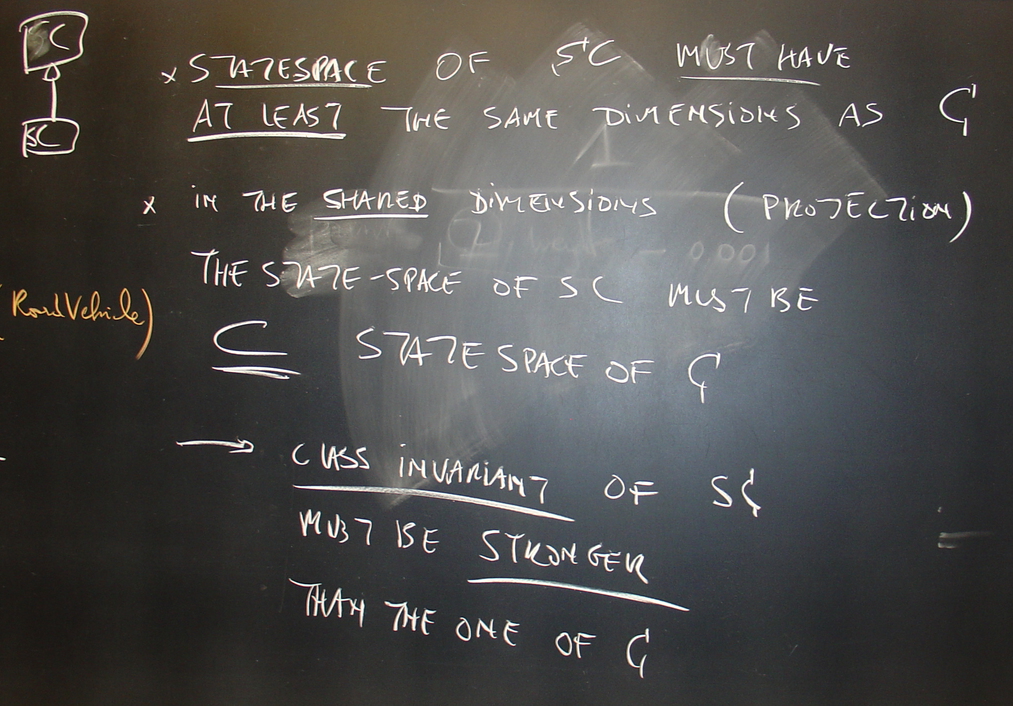 SC
SC
x STATESPACE OF SC MUST HAVE
AT LEAST THE SAME DIMENSIONS AS C
x IN THE SHARED DIMENSIONS (PROJECTION)
THE STATE-SPACE OF SC MUST BE
RoadVehicle)
⊆ STATE SPACE OF C
→ CLASS INVARIANT OF SC
MUST BE STRONGER
THAN THE ONE OF C